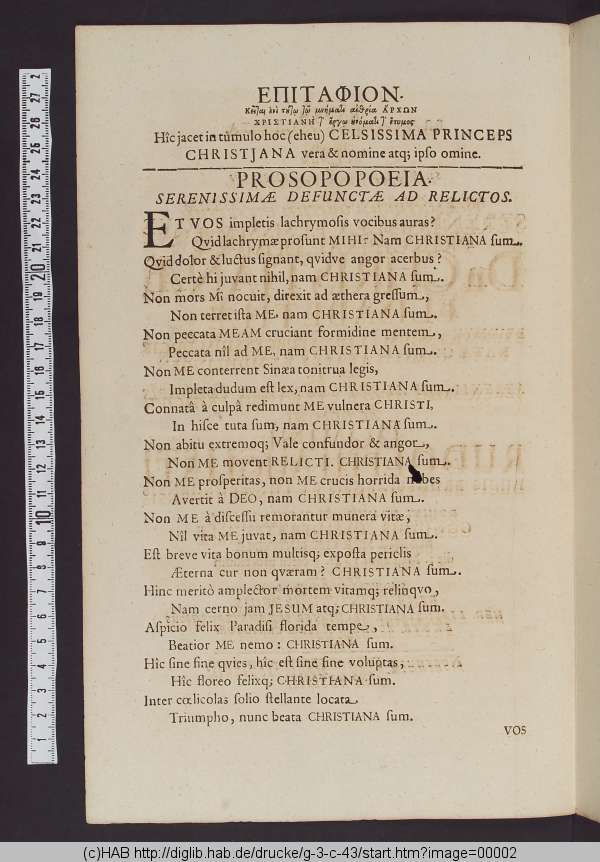 ΕΠΙΤΑΦΙΟΝ.
ΧΡΙΣΤΙΑΝΗ
Hîc jacet in tùmulo hoc (eheu) CELSISSIMA PRINCEPS
CHRISTJANA vera & nomine atq; ipso omine.
PROSOPOPOEIA.
SERENISSIMÆ DEFUNCTÆ AD RELICTOS.
ET VOS impletis lachrymosis vocibus auras?
Qvid lachrymæ prosunt MIHI? Nam CHRISTIANA sum.
Qvid dolor & luctus signant, qvidve angor acerbus?
Certè hi juvant nihil, nam CHRISTIANA sum.
Non mors MI nocuit, direxit ad æthera gressum,
Non terret ista ME, nam CHRISTIANA sum.
Non peccata MEAM cruciant formidine mentem,
Peccata nîl ad ME, nam CHRISTIANA sum.
Non ME conterrent Sinæa tonitrua legis,
Impleta dudum est lex, nam CHRISTIANA sum.
Connatâ à culpâ redimunt ME vulnera CHRISTI,
In hisce tuta sum, nam CHRISTIANA sum.
Non abitu extremoq; Vale confundor & angor,
Non ME movent RELICTI. CHRISTIANA sum.
Non ME prosperitas, non ME crucis horrida nubes
Avertit à DEO, nam CHRISTIANA sum.
Non ME à discessu remorantur munera vitæ,
Nîl vita ME juvat, nam CHRISTIANA sum.
Est breve vita bonum multisq; exposta periclis
Æterna cur non qværam? CHRISTIANA sum.
Hinc meritò amplector mortem vitamq; relinqvo,
Nam cerno jam JESUM atq; CHRISTIANA sum.
Aspicio felix Paradisi florida tempe,
Beatior ME nemo: CHRISTIANA sum.
Hîc sine fine qvies, hîc est sine fine voluptas,
Hîc floreo felixq; CHRISTIANA sum.
Inter cœlicolas solio stellante locata
Triumpho, nunc beata CHRISTIANA sum.
VOS
1 2 3 4 5 6 7 8 9 10 11 12 13 14 15 16 17 18 19 20 21 22 23 24 25 26 27 2
(c)HAB http://diglib.hab.de/drucke/g-3-c-43/start.htm?image=00002